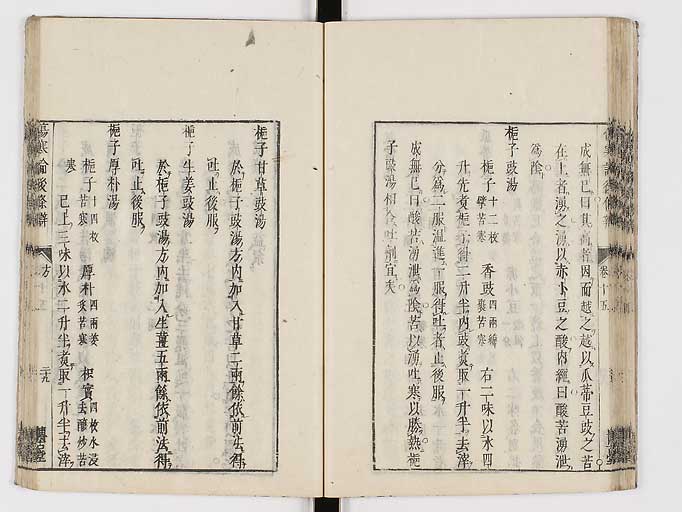 成無已曰其高者因而越之越以瓜蒂豆豉之苦
在上者湧之湧以赤小豆之酸内經曰酸苦湧泄
爲陰
梔子豉湯
梔子十二枚擘苦寒 香豉四兩綿裹苦寒 右二味以水四
升先煑梔子得二升半内豉煑取一升半去滓
分爲二服温進一服得吐者止後服
成無已曰酸苦湧泄爲陰苦以湧吐寒以勝熱梔
子豉湯相合吐劑宜矣
卷十五
傷寒論後條辯
方
梔子甘草豉湯
於梔子豉湯方内加入甘草二兩餘依前法得
吐止後服
梔子生姜豉湯
於梔子豉湯方内加入生薑五兩餘依前法得
吐止後服
梔子厚朴湯
梔子十四枚苦寒 厚朴四兩姜炙苦寒 枳實四枚水浸去穰炒苦
寒 已上三味以水三升半煑取一升半去滓